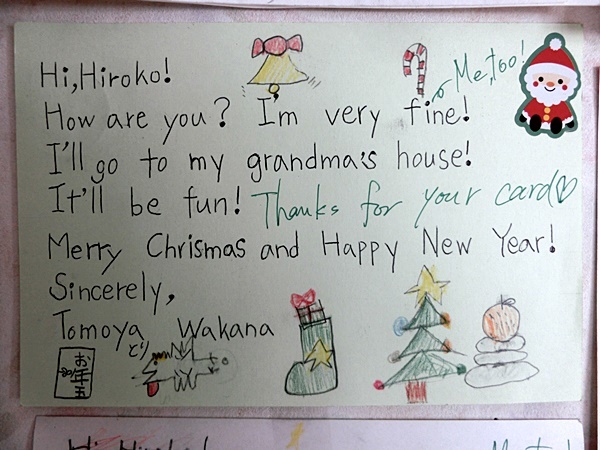 Hi, Hiroko!
Me, too!
How are you? I'm very fine!
I'll go to my grandma's house!
It'll be fun! Thanks for your card♡
Merry Chrismas and Happy New Year!
Sincerely,
Tomoya Wakana
お年玉